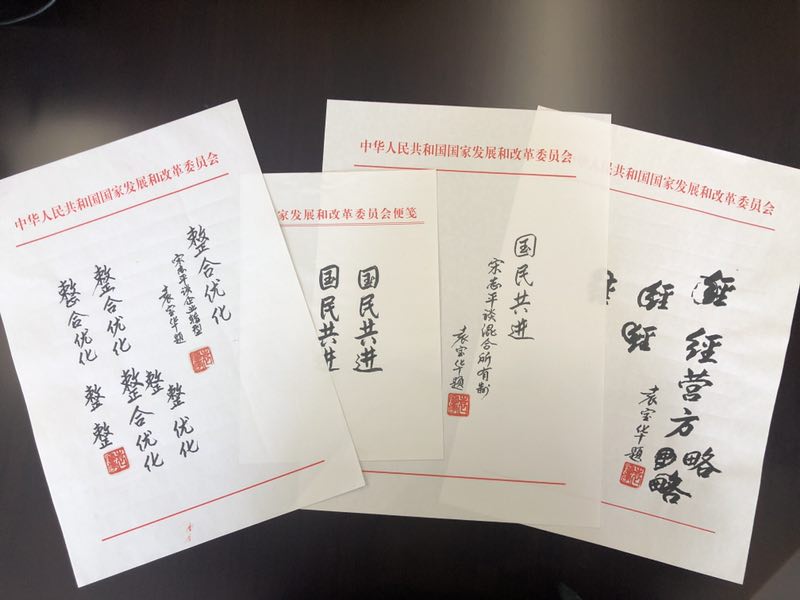 中华人民共和国国家发展和改革委员会
整合优化
宋志平谈企业转型
袁宝华题
整合优化
整合优化
整合优化
整
整优化
整
整
家发展和改革委员会便笺
国民共进
国民共进
中华人民共和国国家发展和改革委员会
国民共进
宋志平谈混合所有制
袁宝华题
民共和国国家发展和改革委员会
经营方略
袁宝华题
略